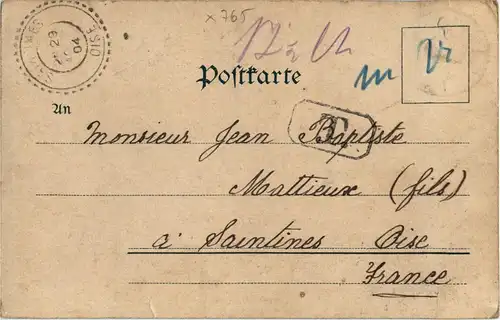 x 765
Postkarte
OISE
29
04
An
Monsieur Jean Baptiste
Mattieux (fils)
à Saintines Oise
France